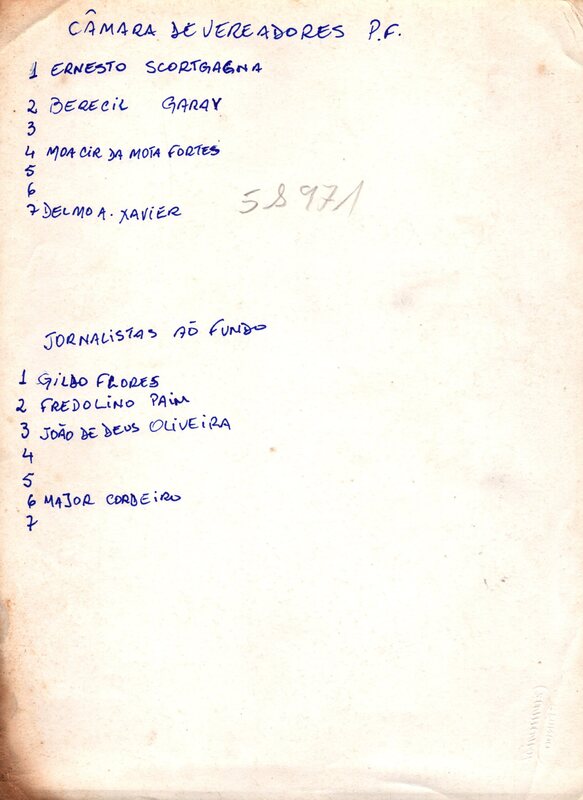 CÂMARA DE VEREADORES P.F.
1 ERNESTO SCORTGAGNA
2 BERECIL GARAY
3
4 MOACIR DA MOTA FORTES
5
6
7 DELMO A. XAVIER
58971
JORNALISTAS AO FUNDO
1 GILDO FLORES
2 FREDOLINO PAIM
3 JOÃO DE DEUS OLIVEIRA
4
5
6 MAJOR CORDEIRO
7